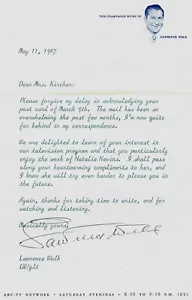 THE CHAMPAGNE MUSIC OF
LAWRENCE WELK
May 11, 1967
Dear Mrs. Kirchen:
Please forgive my delay in acknowledging your
post card of March 9th. The mail has been so
overwhelming the past few months, I'm now quite
far behind in my correspondence.
We are delighted to learn of your interest in
our television program and that you particularly
enjoy the work of Natalie Nevins. I shall pass
along your heartwarming compliments to her, and
I know she will try ever harder to please you in
the future.
Again, thanks for taking time to write, and for
watching and listening.
Musically yours,
Lawrence Welk
Lawrence Welk
LW/glt
ABC-TV NETWORK • SATURDAY EVENINGS • 8:30 TO 9:30 P.M. (ET)